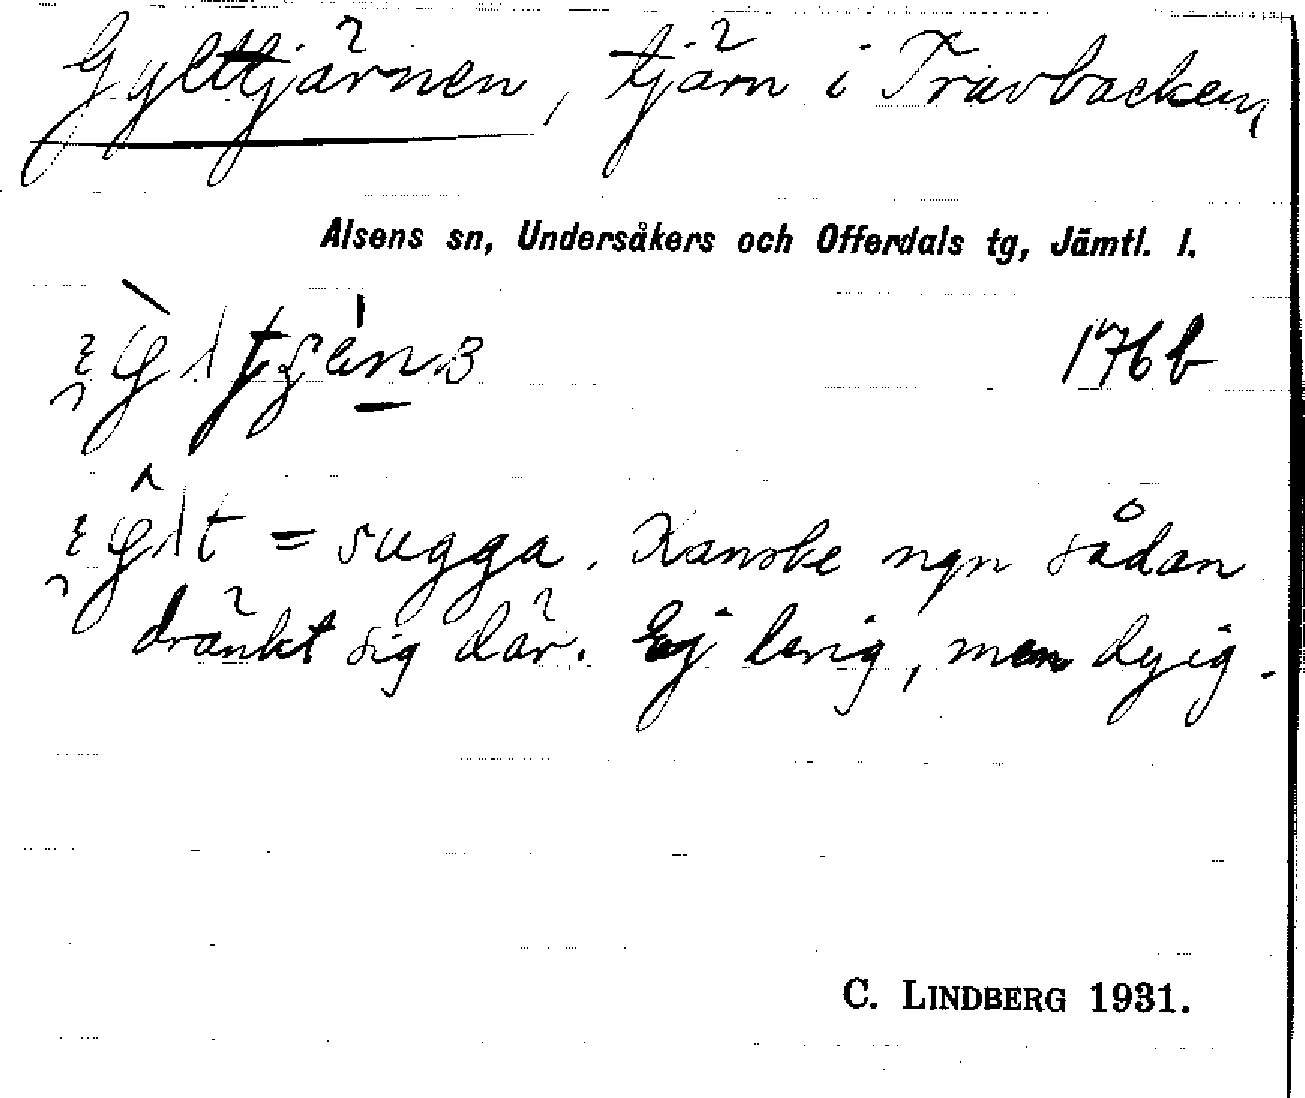 Gylttjärnen, tjärn i Travbacken,
Alsens sn, Undersåkers och Offerdals tg, Jämtl. l.
176 b
= sugga. Kanske ngn sådan
dränkt sig där. Ej lerig, men dyig.
C. LINDBERG 1931.